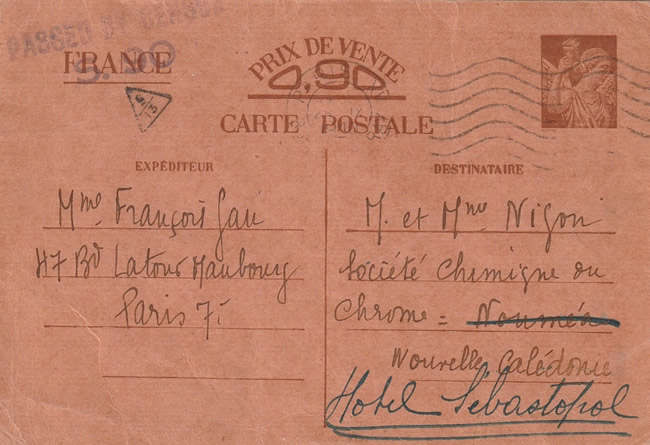 PASSED BY CENSOR
S.90
FRANCE
PRIX DE VENTE
0,90
CARTE POSTALE
EXPÉDITEUR
Mme François Gau
47 Bd Latour Maubourg
Paris 7
DESTINATAIRE
M. et Mme Nigon
Société Chimique du
Chrome = Nouméa
Nouvelle Calédonie
Hotel Sébastopol